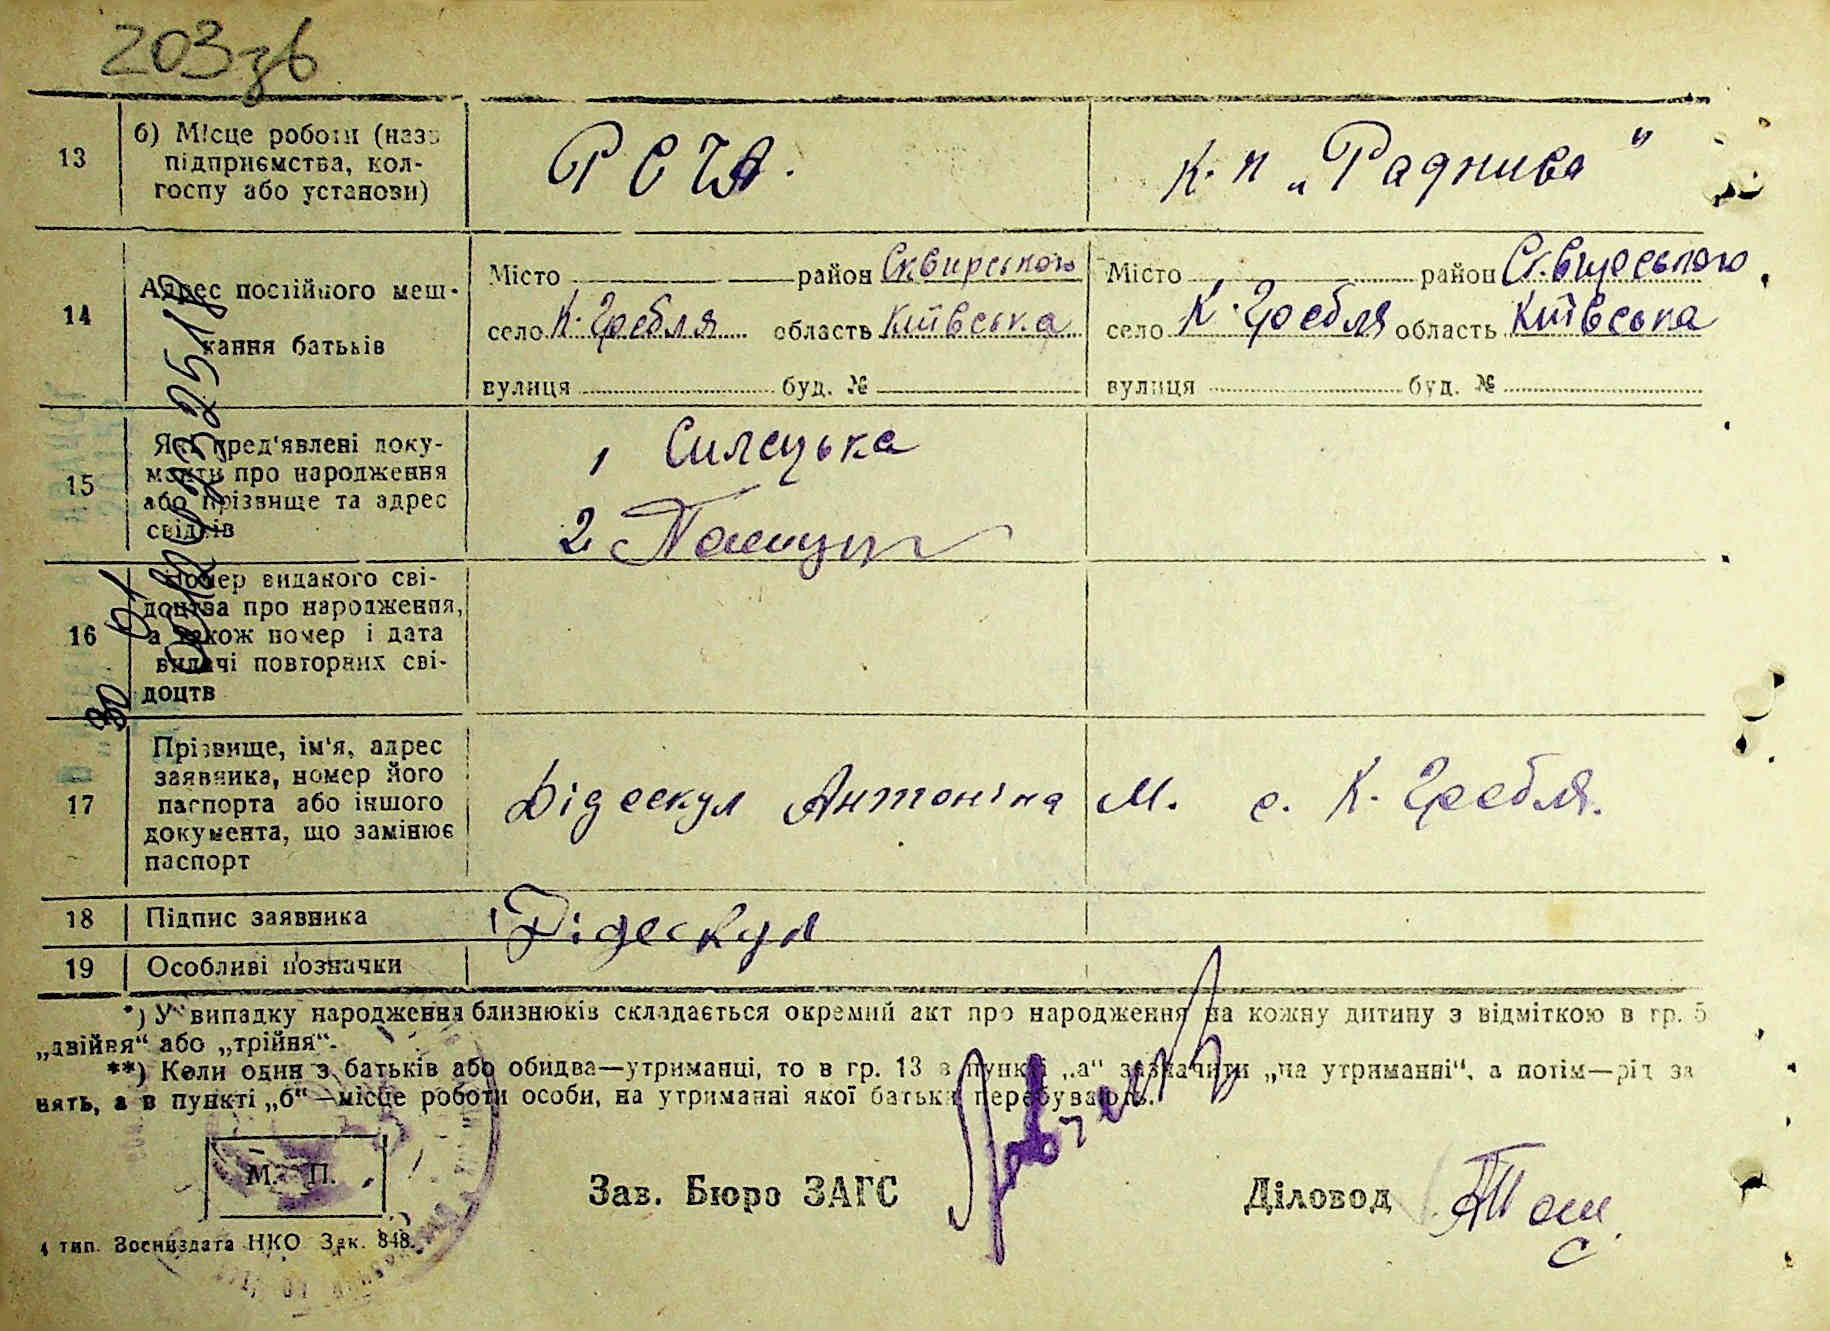 203зв
13
б) Місце роботи (назв
підприємства, кол-
госпу або установи)
РСЧА.
к.п „Раднива"
14
Адрес постійного меш-
кання батьків
Місто район Сквирського
село К.Гребля область Київська
вулиця буд. №
Місто район Сквирського
село К.Гребля область Київська
вулиця буд. №
15
Які пред'явлені доку-
менти про народження
або прізвище та адрес
свідків
1, Силецька
2
16
Номер виданого сві-
доцтва про народження,
а також номер і дата
видачі повторних сві-
доцтв
17
Прізвище, ім'я, адрес
заявника, номер його
паспорта або іншого
документа, що замінює
паспорт
Дідескул Антоніна М. с. К. Гребля.
18
Підпис заявника
Дідескул
19
Особливі позначки
*) У випадку народження близнюків складається окремий акт про народження на кожну дитину з відміткою в гр. 5
„двійня“ або „трійня“.
**) Коли один з батьків або обидва—утриманці, то в гр. 13 в пункті „а“ зазначити „на утриманні“, а потім—рід за
нять, а в пункті „б“—місце роботи особи, на утриманні якої батьки перебувають.
М. П.
Зав. Бюро ЗАГС
Діловод
4 тип. Воениздата НКО Зак. 848.